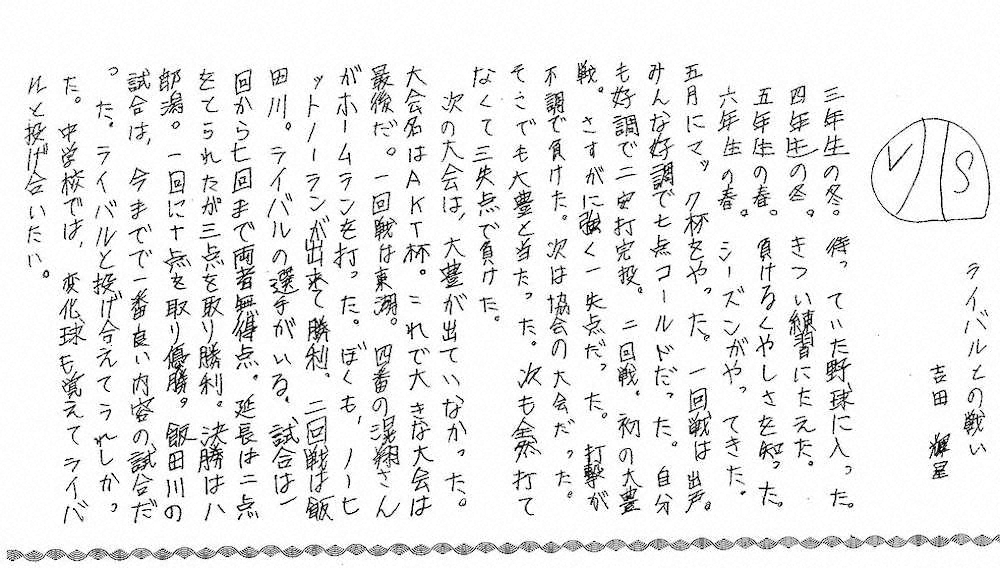 VS
ライバルとの戦い
吉田 輝星
三年生の冬。待っていた野球に入った。
四年生の冬。きつい練習にたえた。
五年生の春。負けるくやしさを知った。
六年生の春。シーズンがやってきた。
五月にマック杯をやった。一回戦は出戸。
みんな好調で七点コールドだった。自分
も好調で二安打完投。二回戦。初の大豊
戦。さすがに強く一失点だった。打撃が
不調で負けた。次は協会の大会だった。
そこでも大豊と当たった。次も全然打て
なくて三失点で負けた。
次の大会は、大豊が出ていなかった。
大会名はAKT杯。これで大きな大会は
最後だ。一回戦は東湖。四番の滉翔さん
がホームランを打った。ぼくも、ノーヒ
ットノーランが出来て勝利。二回戦は飯
田川。ライバルの選手がいる。試合は一
回から七回まで両者無得点。延長は二点
をとられたが三点を取り勝利。決勝は八
郎潟。一回に十点を取り優勝。飯田川の
試合は、今までで一番良い内容の試合だ
った。ライバルと投げ合えてうれしかっ
た。中学校では、変化球も覚えてライバ
ルと投げ合いたい。